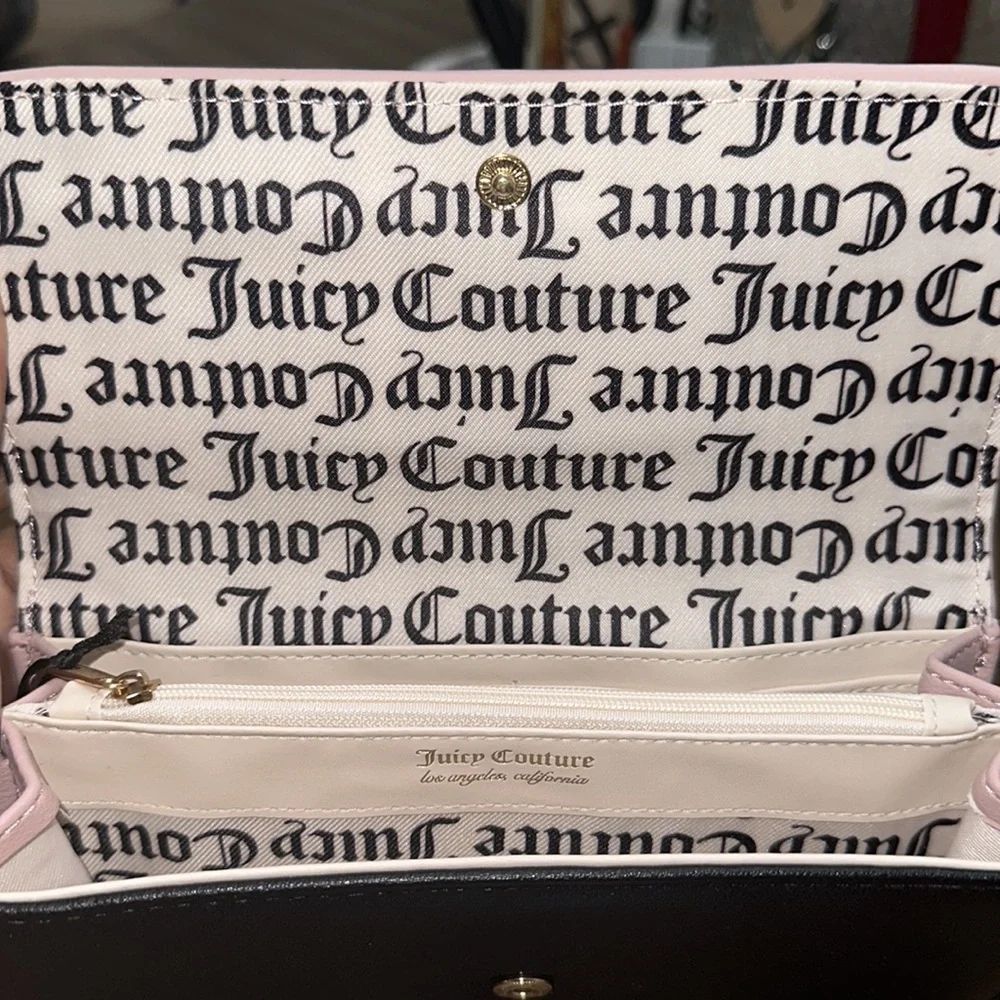 uture Juicy Couture Juicy C
Juicy Couture Juicy Couture J
uture Juicy Couture Juicy Co
Juicy Couture Juicy Couture J
outure Juicy Couture Juicy Cou
Juicy Couture Juicy Couture J
outure Juicy Couture Juicy Co
Juicy Couture
los angeles, california
Juicy Couture Juicy Couture